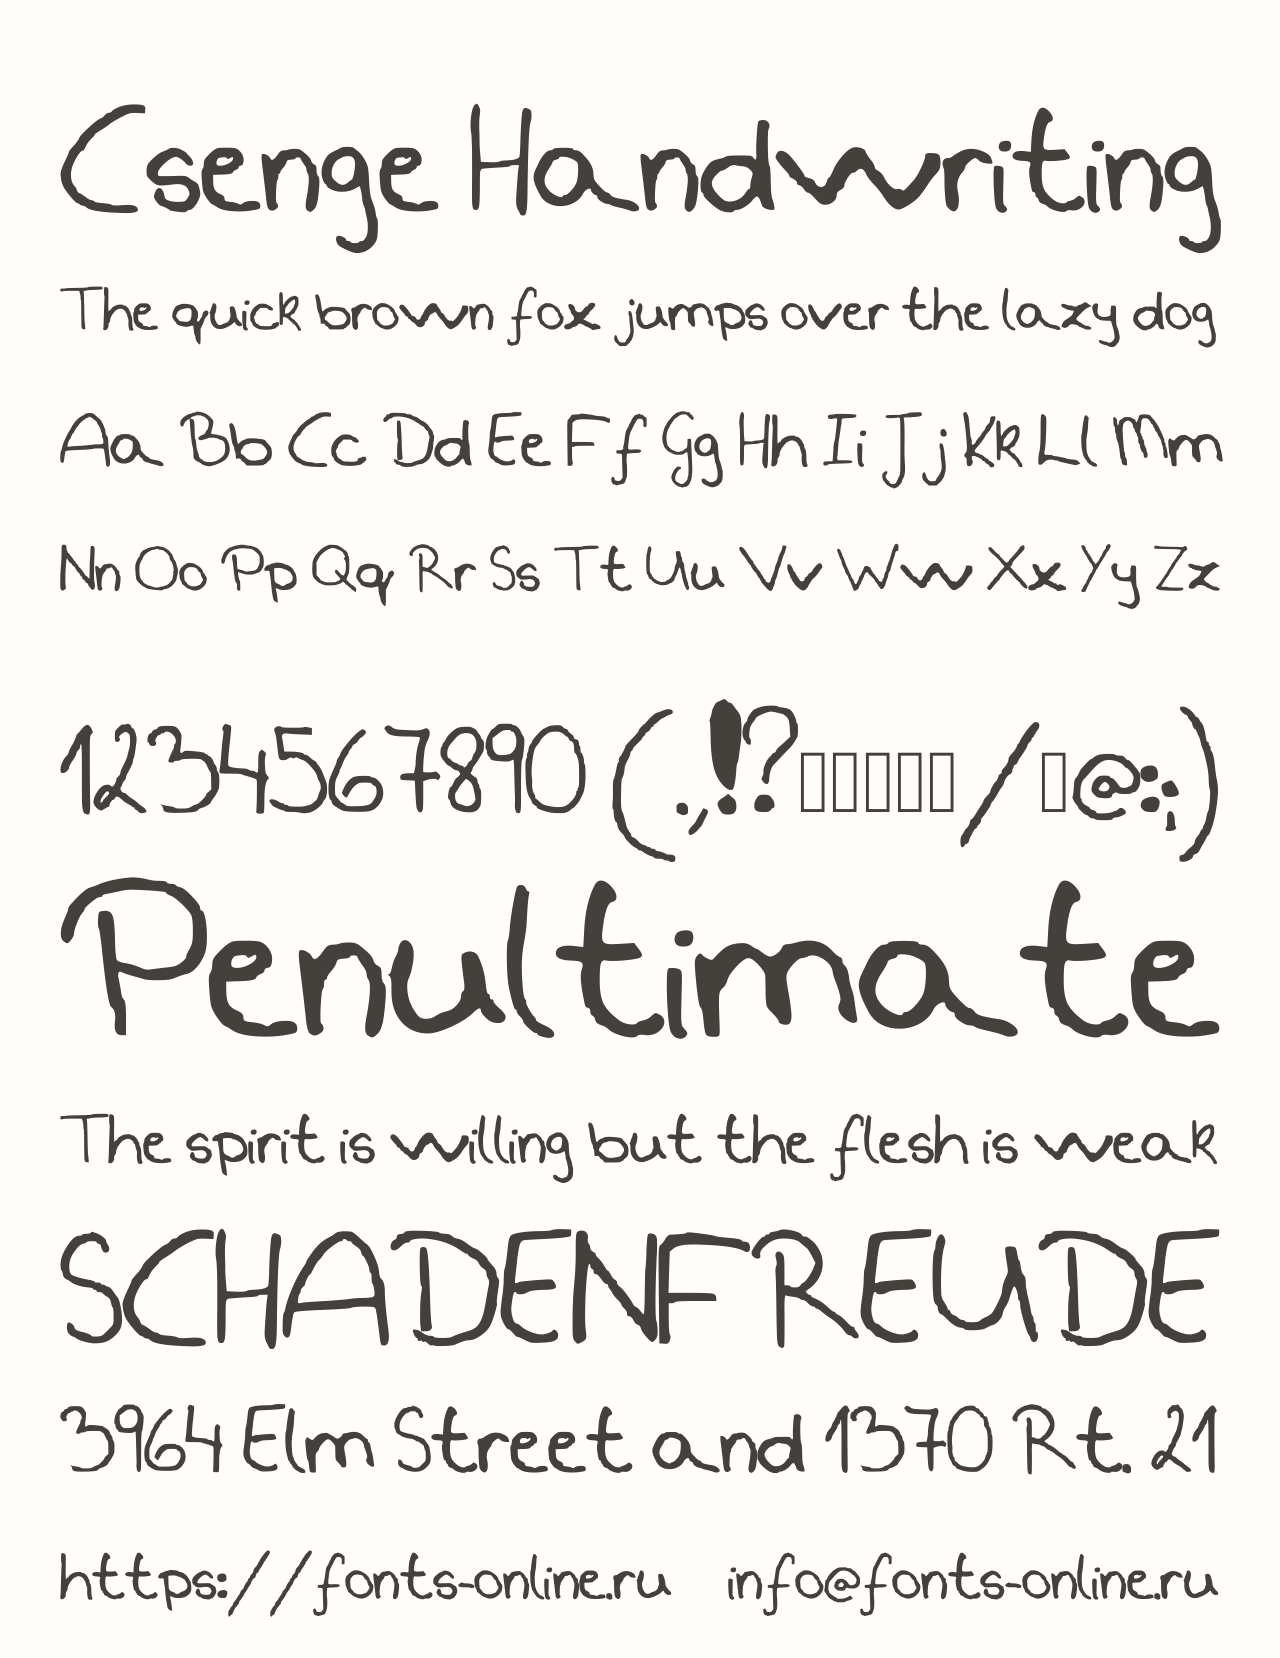 Csenge Handwriting
The quick brown fox jumps over the lazy dog
Aa Bb Cc Dd Ee Ff Gg Hh Ii Jj Kk Ll Mm
Nn Oo Pp Qq Rr Ss Tt Uu Vv Ww Xx Yy Zz
1234567890 (.,!?▯▯▯▯▯/▯@:;)
Penultimate
The spirit is willing but the flesh is weak
SCHADENFREUDE
3964 Elm Street and 1370 Rt. 21
https://fonts-online.ru info@fonts-online.ru